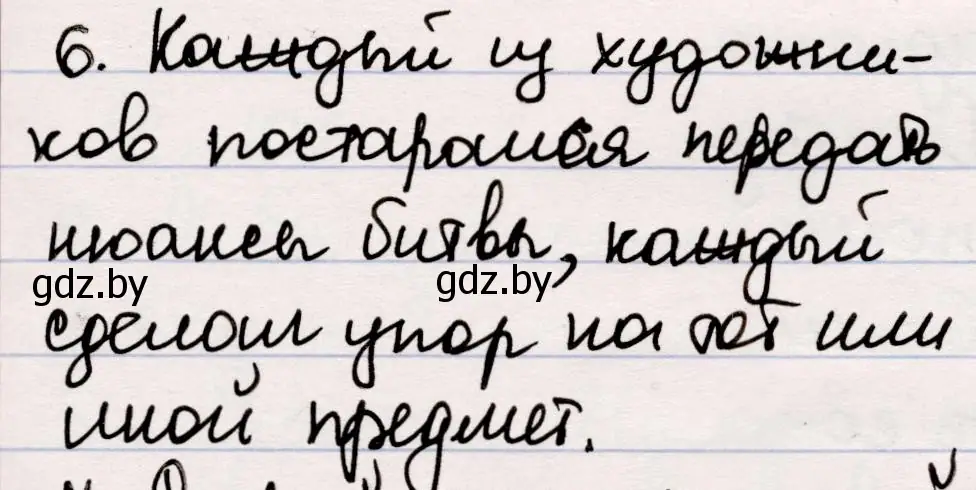 6. Каждый из художни-
ков постарался передать
нюансы битвы, каждый
gdz.by gdz.by
сделал упор на тот или
иной предмет.